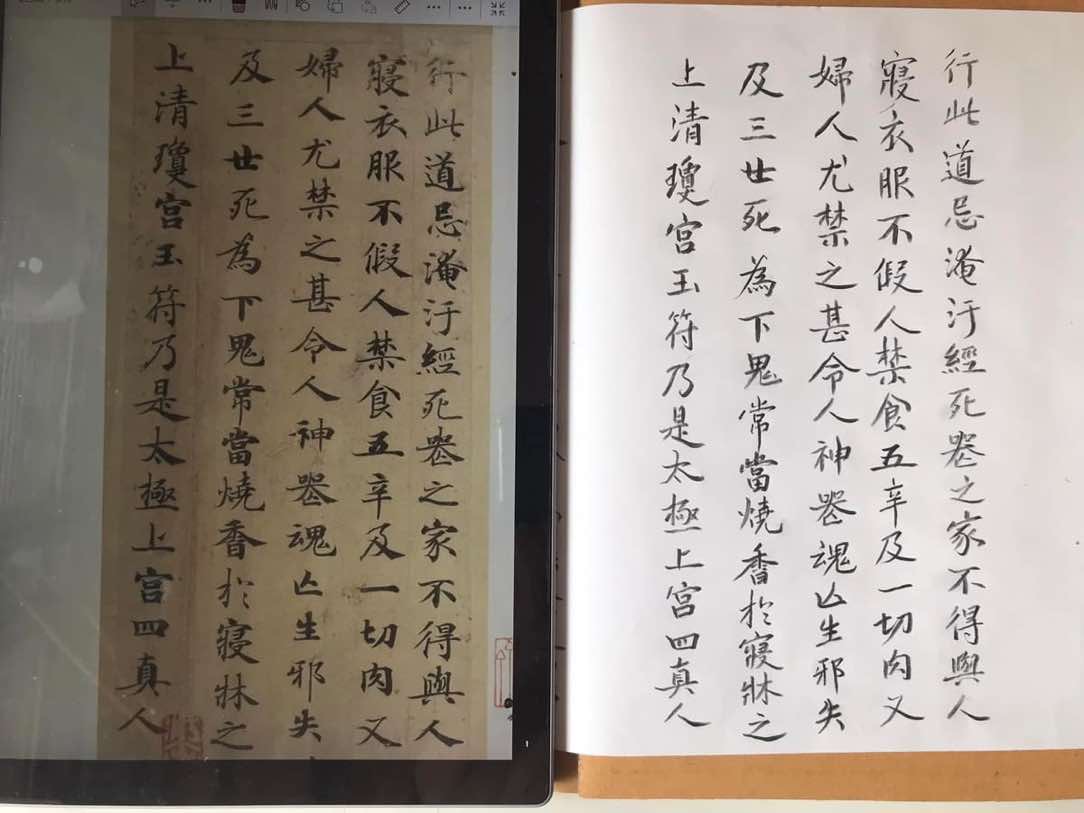 行此道忌淹汙經死喪之家不得與人
寢衣服不假人禁食五辛及一切肉又
婦人尤禁之甚令人神喪魂亡生邪失
及三世死為下鬼常當燒香於寢牀之
上清瓊宫玉符乃是太極上宫四真人
行此道忌淹汙經死喪之家不得與人
寢衣服不假人禁食五辛及一切肉又
婦人尤禁之甚令人神喪魂亡生邪失
及三世死為下鬼常當燒香於寢牀之
上清瓊宫玉符乃是太極上宫四真人